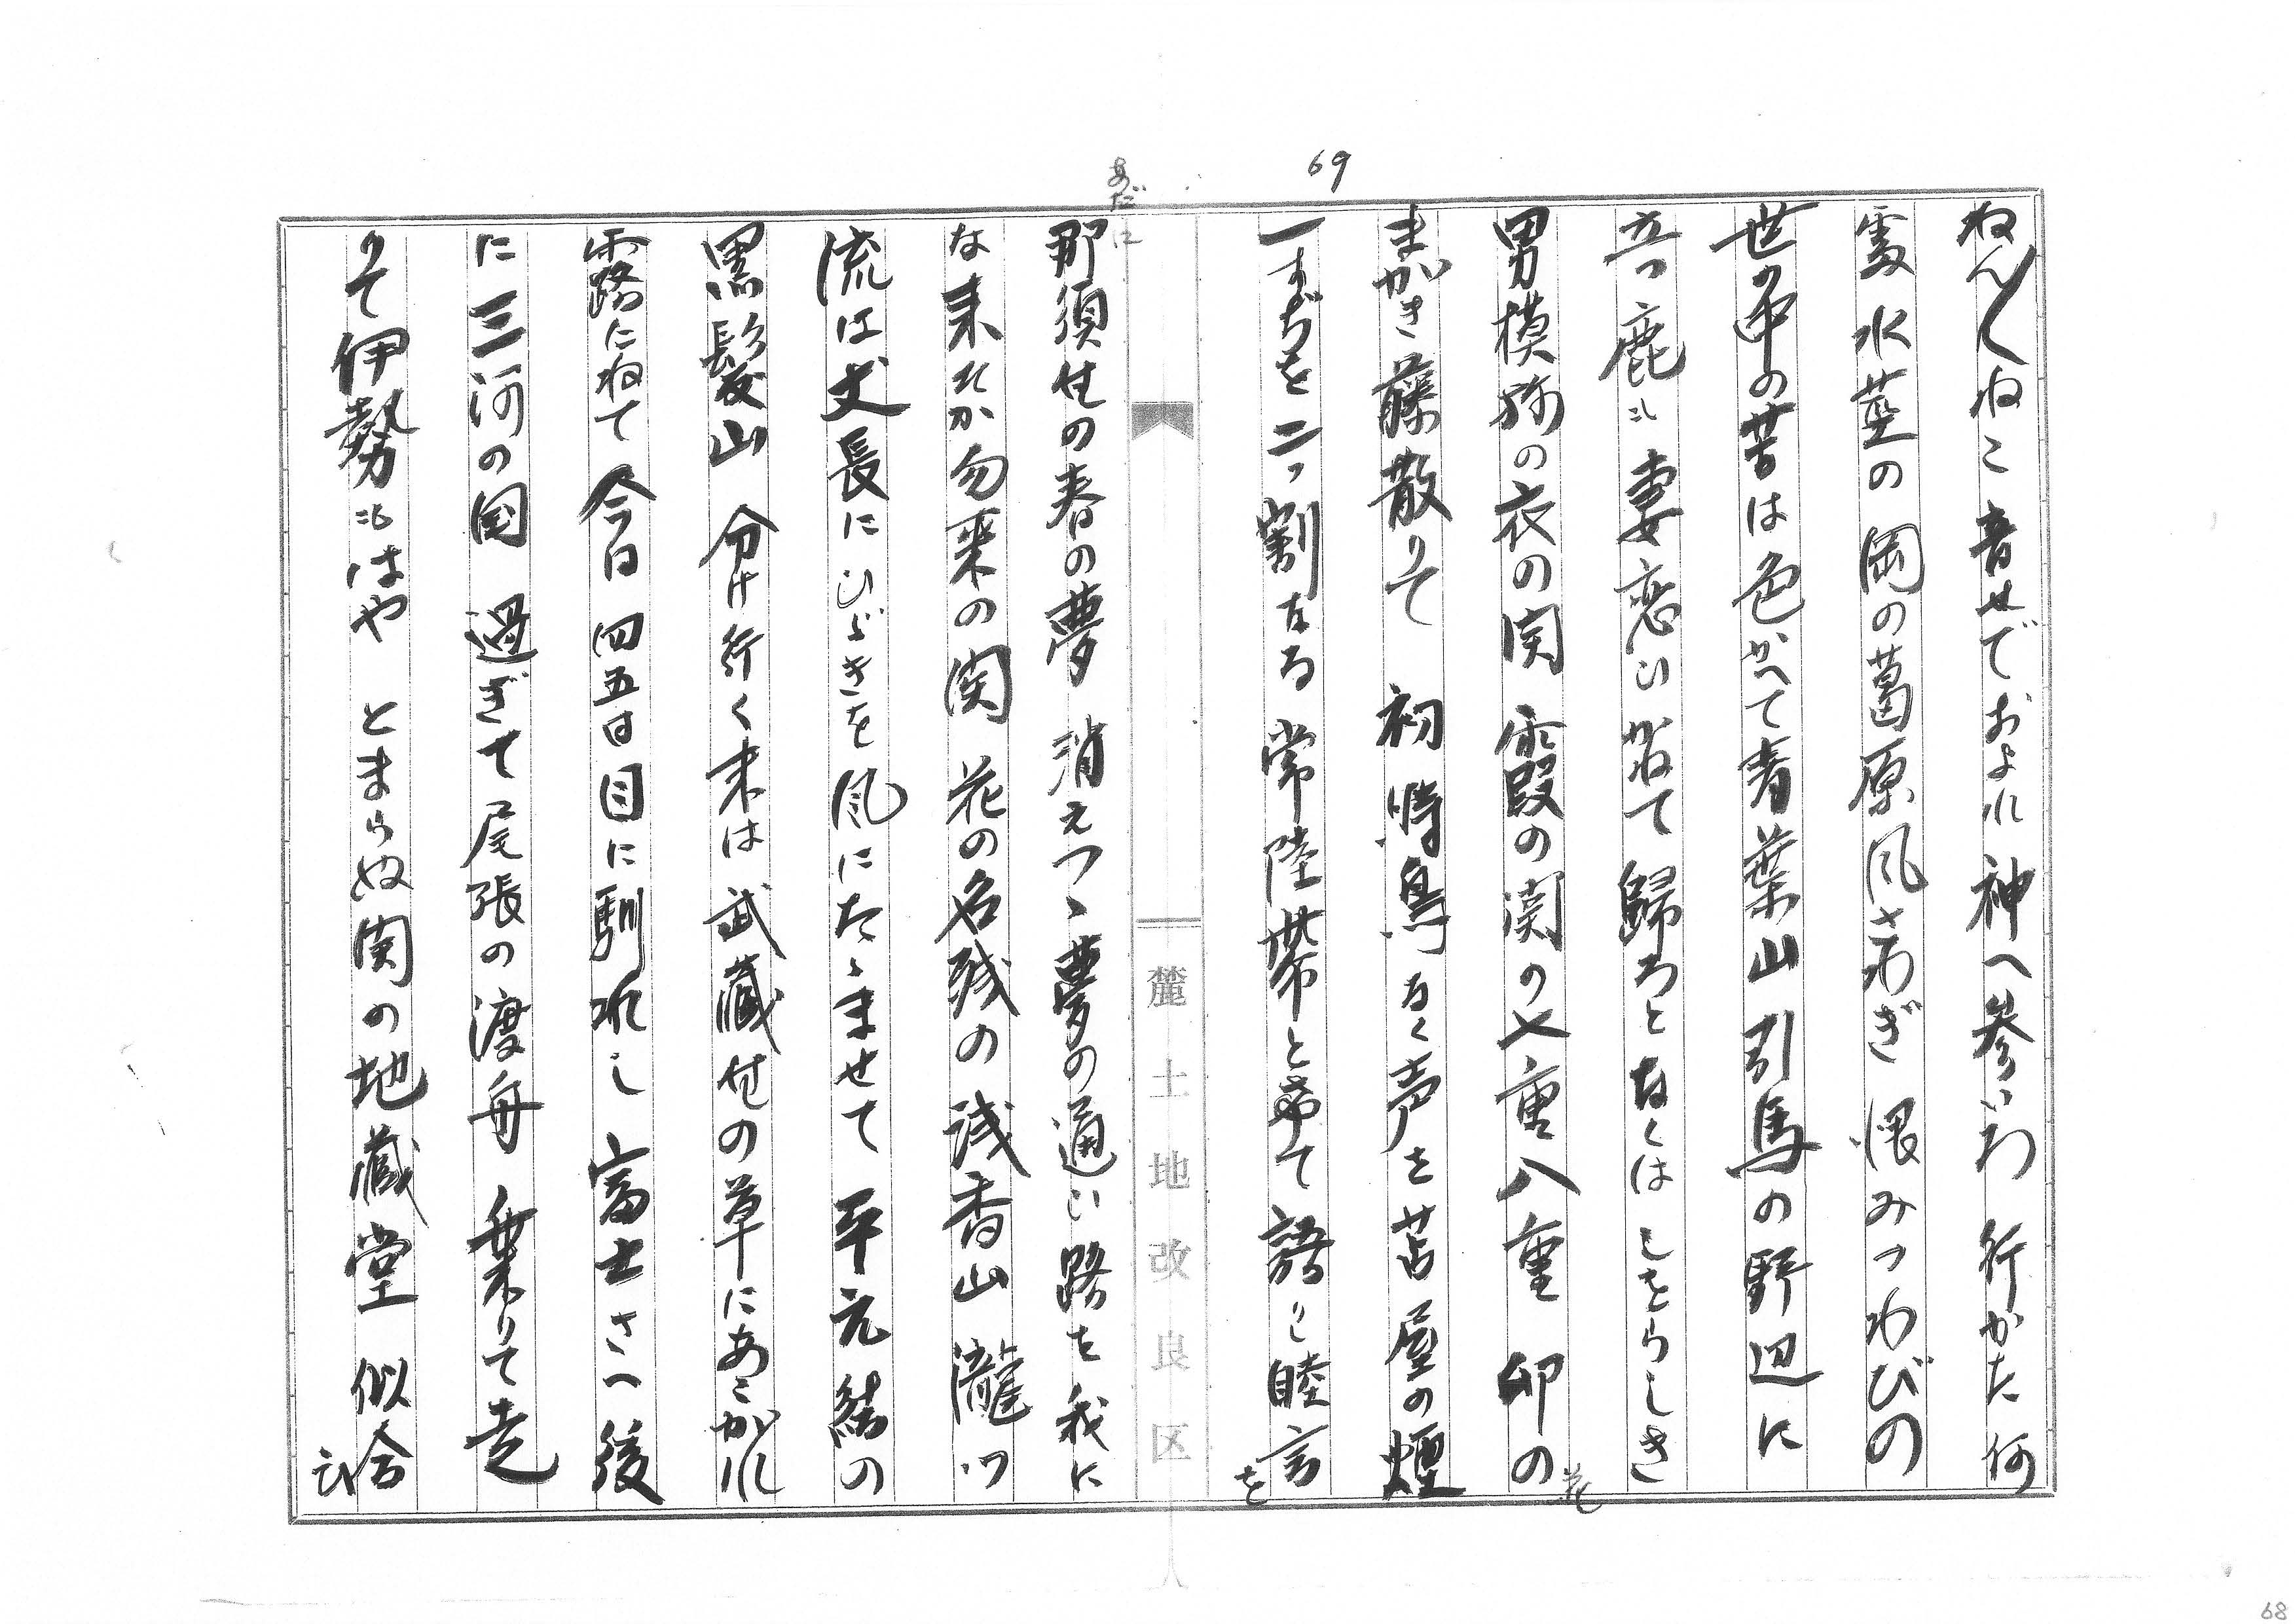 69
ねん〱ねこ 音せでおよれ 神へ参いろ 行かた何
雲水茎の岡の葛原風さわぎ 恨みつわびの
世の中の苦は色かへて青葉山 引馬の野辺に
立つ鹿も妻恋いかねて歸ろとなくは しをらしき
男模称の衣の関 霞の関の七重八重 卯の
花
まがき藤散りて 初時鳥なく声を苫屋の煙
一すぢを二つ割なる常陸帯と帯て語りし睦言
を
麓土地改良区
あだに
那須野の春の夢 消えつゝ夢の通い路を我に
な来そか勿来の関 花の名残の浅香山 瀧つ
流は丈長にひゞきを風にたゝませて 平元結の
黒髪山 分け行く末は武蔵野の草にあこがれ
露にねて今日四五日目に馴れし 富士さへ後
に三河の国 過ぎて尾張の渡舟 乗りて走
りて伊勢もはや とまらぬ関の地蔵堂 似合
68